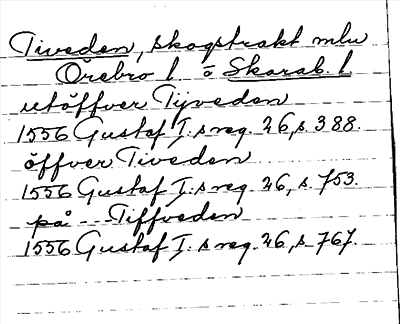 Tiveden, skogstrakt mlu
Örebro l o Skarab. l
utöffver Tijveden
1556 Gustaf I:s reg. 26, s. 388.
öffver Tiveden
1556 Gustaf I:s reg. 26, s. 753.
på -- Tiffveden
1556 Gustaf I:s reg. 26, s. 767.